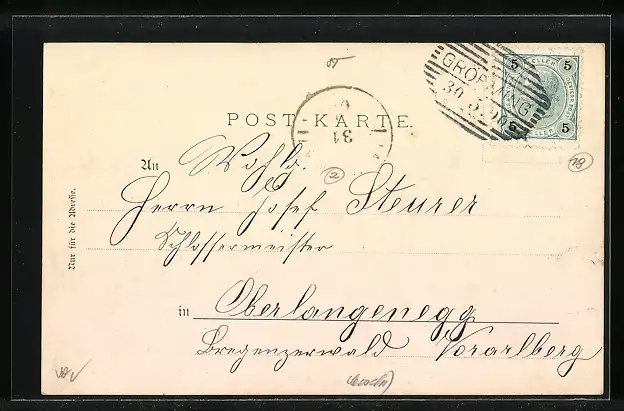 5 HELLER 5
GRÖBMING
30
5 HELLER 5
31
POST-KARTE.
An Wohlg.
Herrn Josef Steurer
Schlossermeister
in Oberlangenegg
Bregenzerwald Vorarlberg
Nur für die Adresse.
2
18